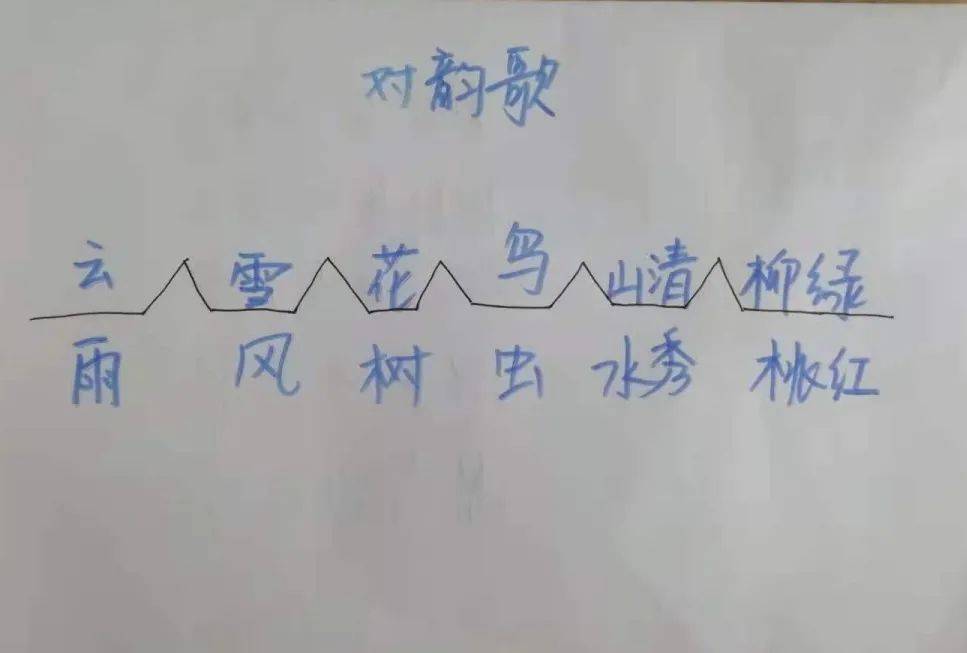 对韵歌
云 雪 花 鸟 山清 柳绿
雨 风 树 虫 水秀 桃红